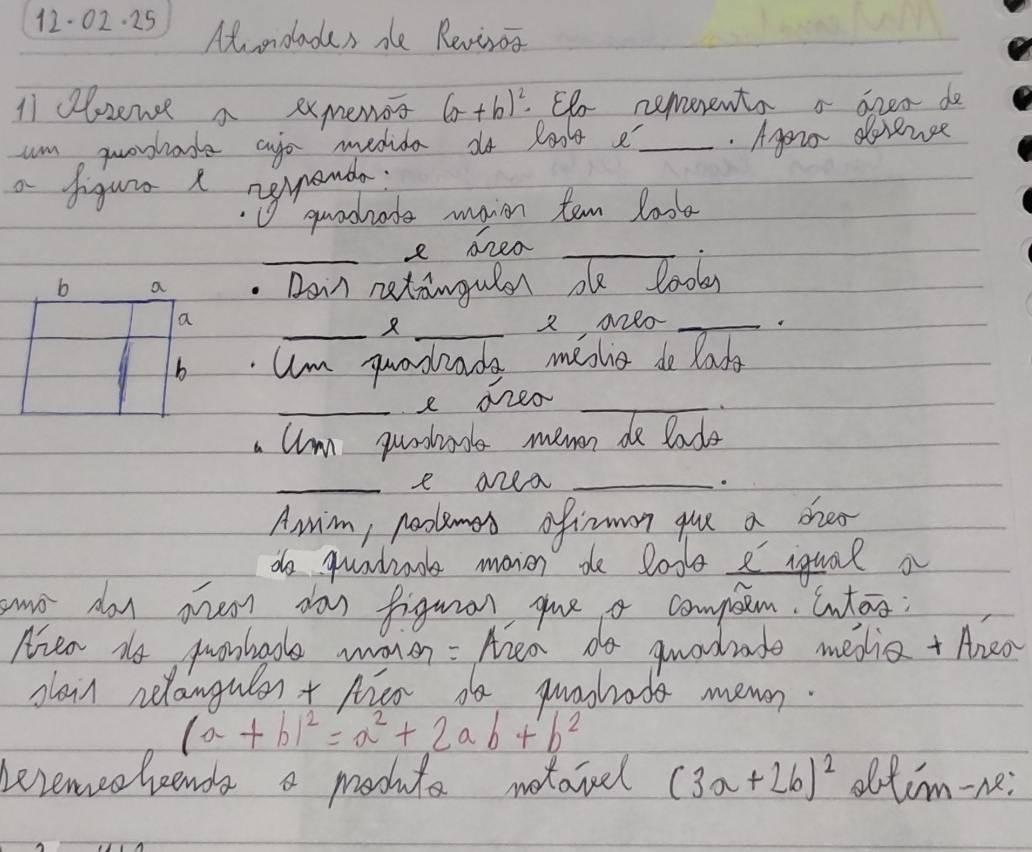 12.02.25
Atividades de Revisão
1) Observe a expressão (a+b)². Ela representa a área de
um quadrado cuja medida do lado é ____. Agora observe
a figura e responda:
. O quadrado maior tem lado
____ e área ____.
b a
a
b
. Dois retângulos de lados
____ e ____ e area ____.
. Um quadrado médio de lado
____ e área ____.
. Um quadrado menor de lado
____ e area ____.
Assim, podemos afirmar que a área
do quadrado maior de lado é igual a
soma das áreas das figuras que o compõem. Então:
Área do quadrado maior = Área do quadrado médio + Área
dois retangulos + Área do quadrado menor.
(a + b)² = a² + 2ab + b²
o produto notável (3a+2b)² obtém-se: